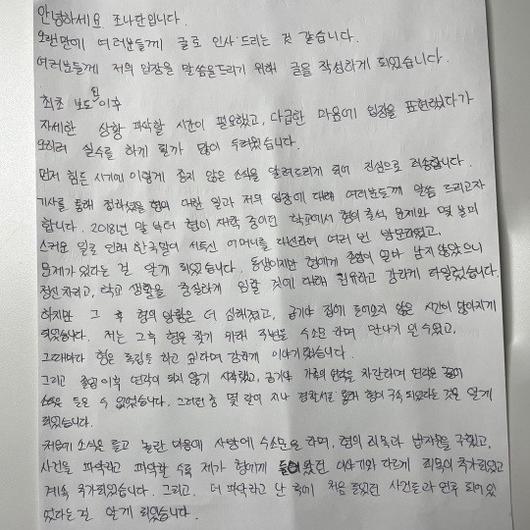 안녕하세요 조나단입니다.
오랜만에 여러분들께 글로 인사드리는 것 같습니다.
여러분들께 저의 입장을 말씀을드리기 위해 글을 작성하게 되었습니다.
최초 보도 이후
자세한 상황 파악할 시간이 필요했고, 다급한 마음에 입장을 표현했다가
오히려 실수를 하게 될까 많이 두려웠습니다.
먼저 힘든 시기에 이렇게 좋지 않은 소식을 알려드리게 되어 진심으로 죄송합니다.
기사를 통해 접하셨을 형에 대한 일과 저의 입장에 대해 여러분들께 말씀 드리고자
합니다. 2018년 말 부터 형이 재학 중이던 학교에서 형의 출석 문제와 몇 불미
스러운 일로 인해 한국말이 서투신 어머니를 대신하여 여러 번 방문하였고,
문제가 있다는 걸 알게 되었습니다. 동생이지만 형에게 졸업이 얼마 남지 않았으니
정신차리고, 학교 생활을 충실하게 임할 것에 대해 회유하고 강하게 타일렀습니다.
하지만 그 후 형의 방황은 더 심해졌고, 급기야 집에 들어오지 않은 시간이 많아지게
되었습니다. 저는 그 후 형을 찾기 위해 주변을 수소문 하며 만나기 일수였고,
그때마다 형은 독립을 하고 싶다며 강하게 이야기했습니다.
그리고 졸업 이후 연락이 되지 않기 시작했고, 급기야 가족의 연락을 차단하며 연락은
소식은 들을 수 없었습니다. 그러던 중 몇 년이 지나 경찰서로 통해 형이 구속 되었다는 것을 알게
되었습니다.
처음에 소식을 듣고 놀란 마음에 사방에 수소문을 하며, 형의 죄목과 남자분을 구했고,
사건을 파악하고 파악할 수록 제가 형에게 들어왔던 이야기와 다르게 죄목이 추가되었고
계속 추가되었습니다. 그리고, 더 파악하고 난 후에 처음 들었던 사건들과 연루 되어있
었다는 걸 알게 되었습니다.